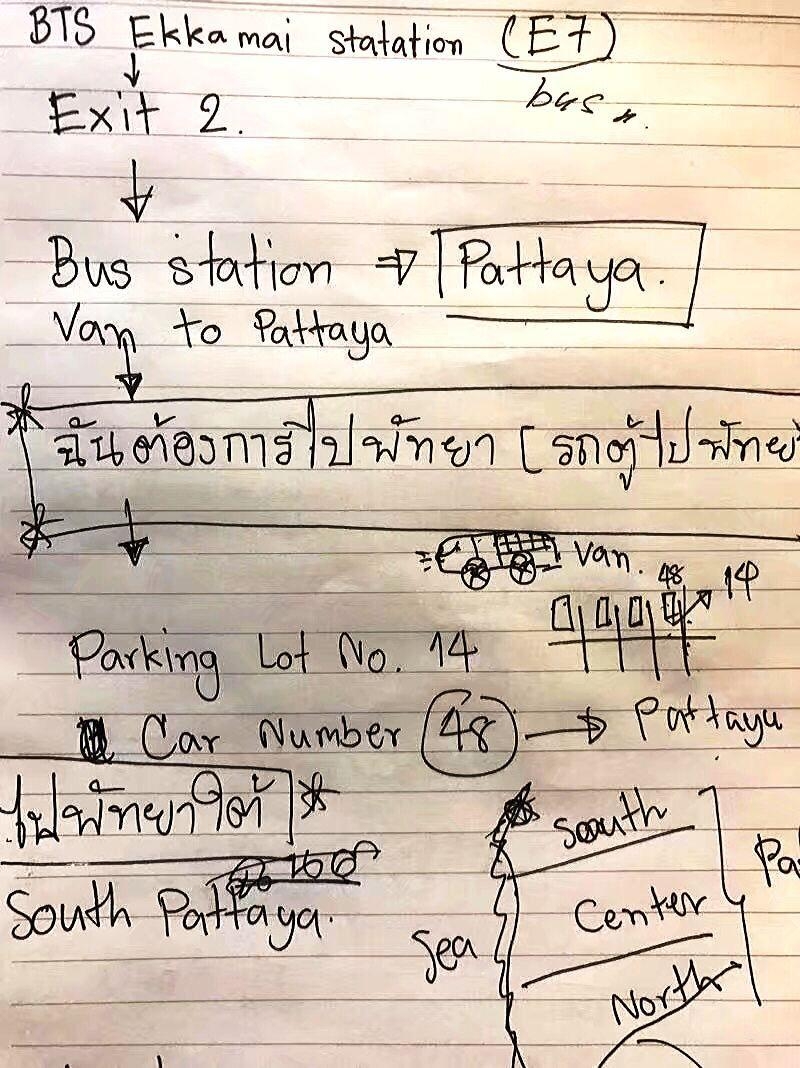 BTS Ekkamai statation (E7)
bus
Exit 2.
Bus station ⇒ Pattaya.
Van to Pattaya
ฉันต้องการไปพัทยา [รถตู้ไปพัทย
Van.
48 14
Parking Lot No. 14
Car Number 48 → Pattaya
ไปพัทยาใต้
South Pattaya.
South
Center
Sea
North
Pa